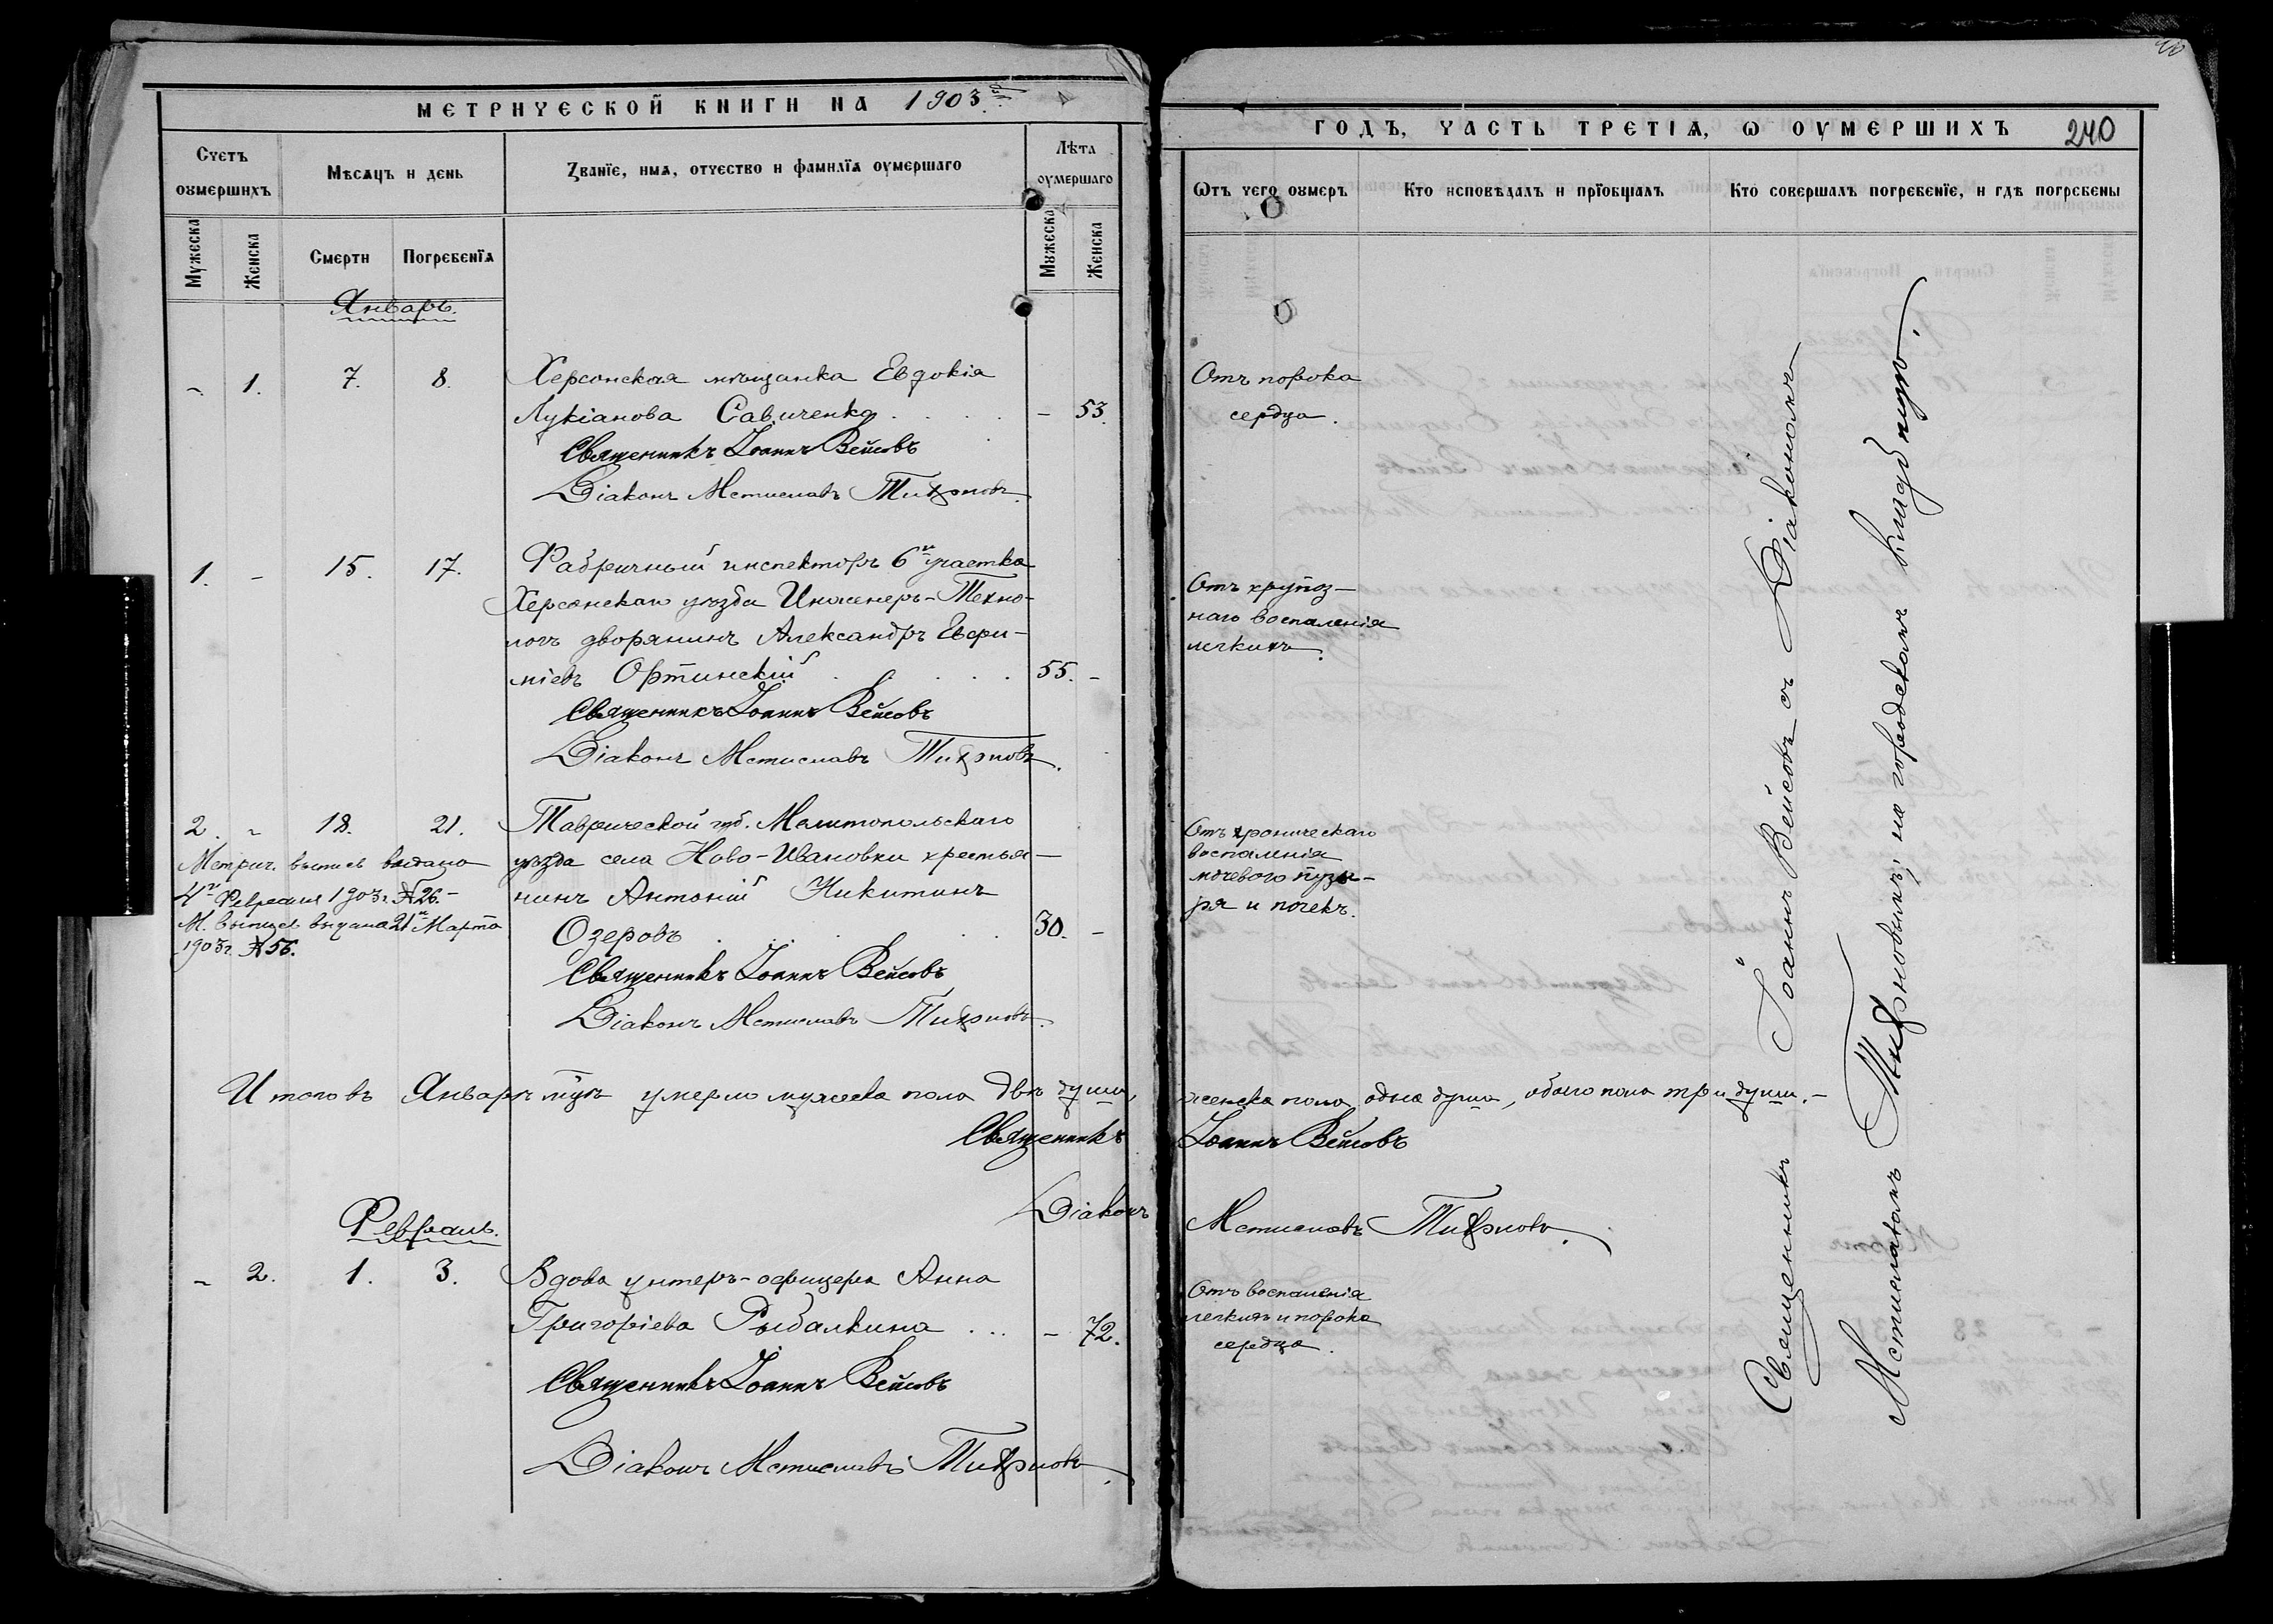 МЕТРИЧЕСКОЙ КНИГИ НА 1903й
Счетъ оумершихъ
Мѣсяцъ и день
Званїе, имя, отчество и фамилїя оумершаго
Лѣта оумершаго
Мужеска
Женска
Смерти
Погребенїя
Мужеска
Женска
Январь.
- 1. 7. 8. Херсонская мѣщанка Евдокія
Лукіанова Савиченко . . . . - 53.
Священникъ Іоаннъ Вейсовъ
Діаконъ Мстиславъ
1. - 15. 17. Фабричный инспекторъ 6го участка
Херсонскаго уѣзда Инженеръ-Техно-
логъ дворянинъ Александръ Евфи-
міевъ Ортинскій . . . . 55. -
Священникъ Іоаннъ Вейсовъ
Діаконъ Мстиславъ
2. - 18. 21. Таврической губ. Мелитопольскаго
уѣзда села Ново-Ивановки крестья-
нинъ Антоній Никитинъ
Озеровъ . . . . 30. -
Метрич. выпись выдана
4го Февраля 1903г. № 26.-
М. выпись выдана 21го Марта
1903г. № 56.
Священникъ Іоаннъ Вейсовъ
Діаконъ Мстиславъ
Итого въ Январѣ м-цѣ умерло мужеска пола двѣ души,
Священникъ
Діаконъ
Февраль.
- 2. 1. 3. Вдова унтеръ-офицера Анна
Григоріева Рыбалкина . . . - 72.
Священникъ Іоаннъ Вейсовъ
Діаконъ Мстиславъ
ГОДЪ, ЧАСТЬ ТРЕТІЯ, Ѡ ОУМЕРШИХЪ 240
Ѿтъ чего оумеръ
Кто исповѣдалъ и прїобщалъ
Кто совершалъ погребенїе, и гдѣ погребены
Отъ порока
сердца.
Отъ крупоз-
наго воспаленія
легкихъ.
Отъ хроническаго
воспаленія
мочеваго пузы-
ря и почекъ.
женска пола одна душа, обоего пола три души.-
Іоаннъ Вейсовъ
Мстиславъ
Отъ воспаленія
легкихъ и порока
сердца.
Священникъ Іоаннъ Вейсовъ съ Діакономъ
Мстиславомъ на городскомъ кладбищѣ.